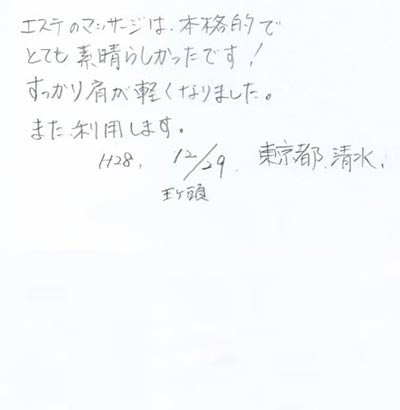 エステのマッサージは、本格的で
とても素晴らしかったです！
すっかり肩が軽くなりました。
また利用します。
H28, 12/29. 東京都、清水、
王ヶ頭